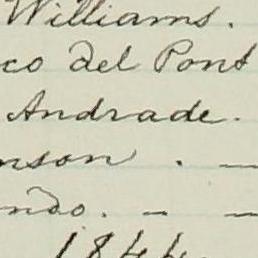 Williams.
co del Pont
Andrade.
nson . —
ndo. – —
1844